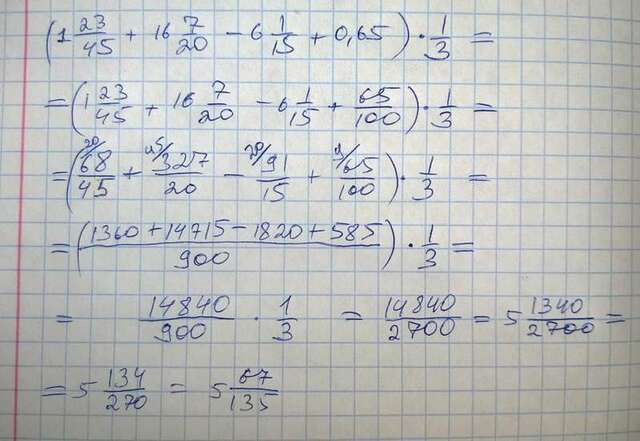 (1 23/45 + 16 7/20 - 6 1/15 + 0,65) · 1/3 =
= (1 23/45 + 16 7/20 - 6 1/15 + 65/100) · 1/3 =
= (20/ 68/45 + 45/ 327/20 - 20/ 91/15 + 9/ 65/100) · 1/3 =
= (1360 + 14715 - 1820 + 585 / 900) · 1/3 =
= 14840/900 · 1/3 = 14840/2700 = 5 1340/2700 =
= 5 134/270 = 5 67/135